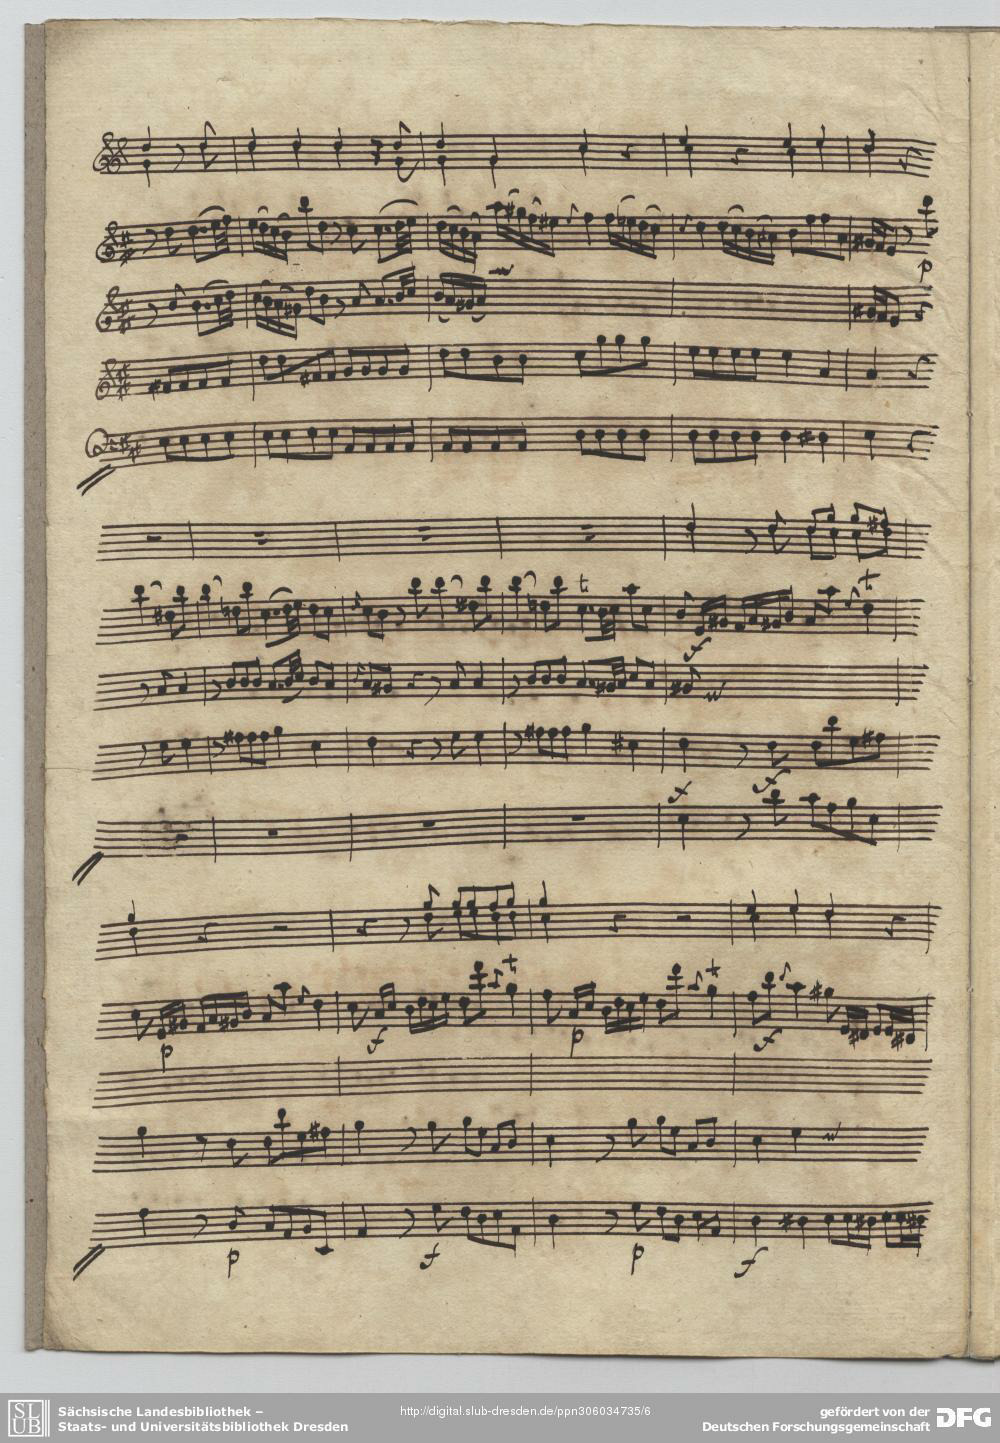 p
t
t
f
f
f
t
t
p
f
p
f
p
f
p
f
SLUB
Sächsische Landesbibliothek –
Staats- und Universitätsbibliothek Dresden
http://digital.slub-dresden.de/ppn306034735/6
gefördert von der
Deutschen Forschungsgemeinschaft
DFG